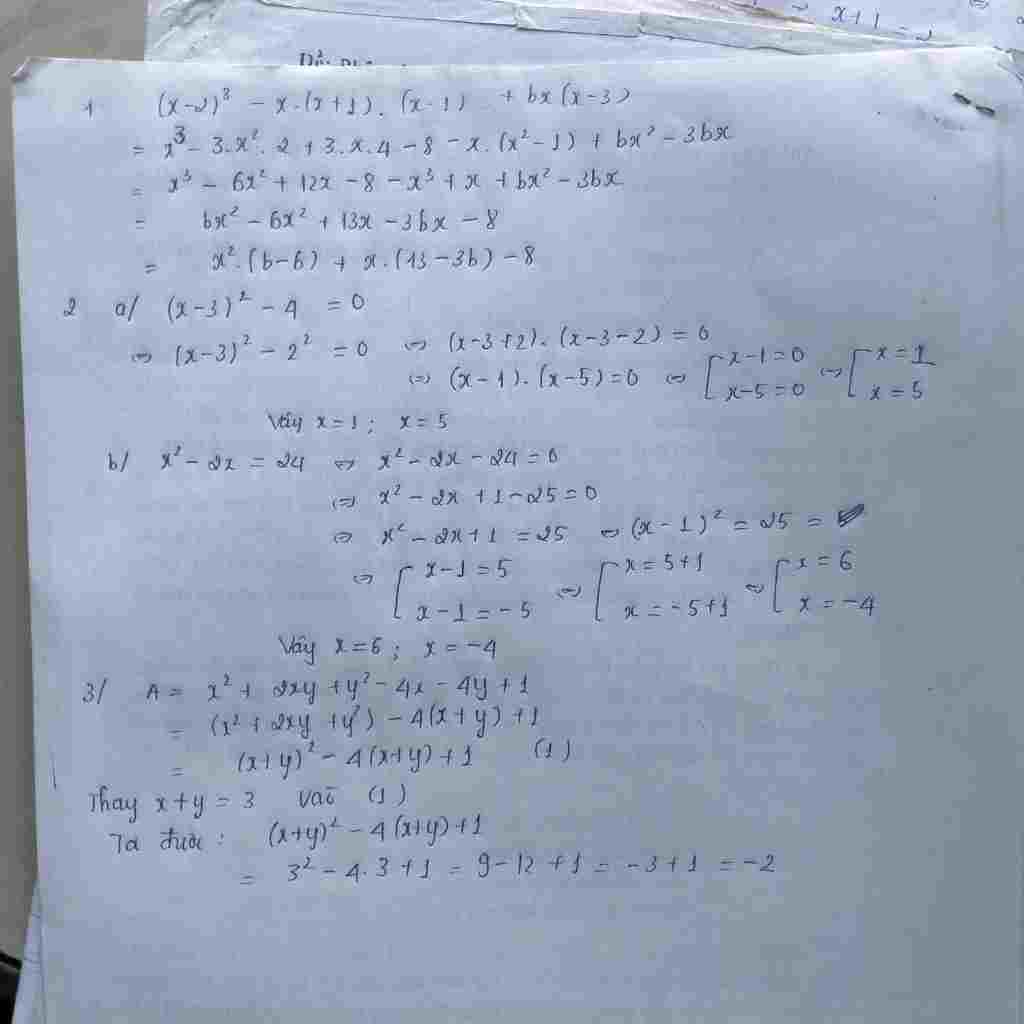 x+1 - 2
1 (x-2)³ - x.(x+1).(x-1) + bx(x-3)
= x³ - 3.x².2 + 3.x.4 - 8 - x.(x²-1) + bx² - 3bx
= x³ - 6x² + 12x - 8 - x³ + x + bx² - 3bx
= bx² - 6x² + 13x - 3bx - 8
= x².(b-6) + x.(13-3b) - 8
2 a/ (x-3)² - 4 = 0
⇔ (x-3)² - 2² = 0 ⇔ (x-3+2).(x-3-2) = 0
⇔ (x-1).(x-5) = 0 ⇔ [ x-1=0 ⇔ [ x=1
x-5=0 x=5
Vậy x=1; x=5
b/ x² - 2x = 24 ⇔ x² - 2x - 24 = 0
⇔ x² - 2x + 1 - 25 = 0
⇔ x² - 2x + 1 = 25 ⇔ (x-1)² = 25 =
⇔ [ x-1=5 ⇔ [ x=5+1 ⇔ [ x=6
x-1=-5 x=-5+1 x=-4
Vậy x=6; x=-4
3/ A = x² + 2xy + y² - 4x - 4y + 1
= (x² + 2xy + y²) - 4(x+y) + 1
= (x+y)² - 4(x+y) + 1 (1)
Thay x+y = 3 vaò (1)
Ta được: (x+y)² - 4(x+y) + 1
= 3² - 4.3 + 1 = 9 - 12 + 1 = -3 + 1 = -2